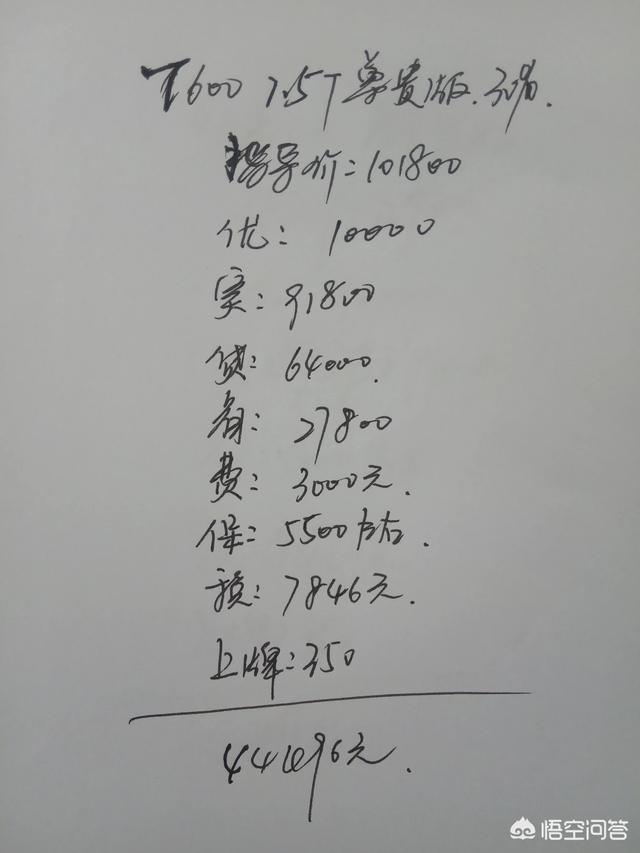 T600 1.5T 尊贵版.
指导价: 101800
优: 10000
实: 91800
贷: 64000.
首: 27800
费: 3000元.
保: 5500左右.
税: 7846元.
上牌: 350
44496元.
悟空问答